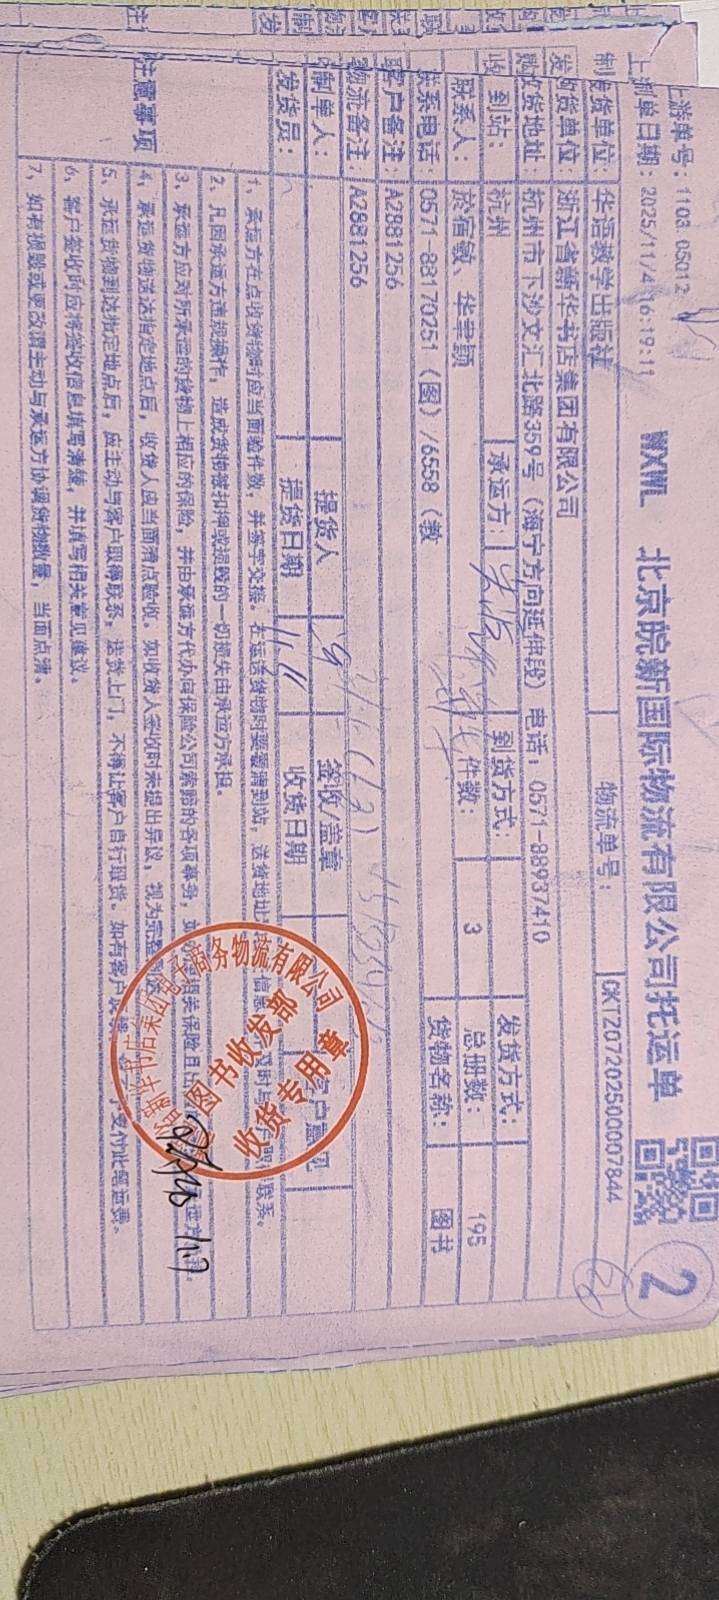 上游单号：1103 05012
WXWL 北京皖新国际物流有限公司托运单
2
制单日期：2025/11/4 16:19:11
物流单号：CKTZ07202500007844
发货单位：华语教学出版社
收货单位：浙江省新华书店集团有限公司
收货地址：杭州市下沙文汇北路359号（海宁方向延伸段）电话：0571-88937410
到站：杭州 承运方： 到货方式： 发货方式：
联系人： 件数：3 总册数：195
联系电话：0571-88170251（图）/6558（教 货物名称：图书
客户备注：A2881256
物流备注：A2881256
制单人： 提货人 签收/盖章 客户意见
发货员： 提货日期 11.11 收货日期
注意事项
1、承运方在点收货物时应当面验件数，并签字交接。在运送货物时要看清到站，送货地址
2、凡因承运方违规操作，造成货物被扣押或损毁的一切损失由承运方承担。
3、承运方应对所承运的货物上相应的保险，并由承运方代办向保险公司索赔的各项事务，
4、承运货物送达指定地点后，收货人应当面清点验收。如收货人签收时未提出异议，视为完整
5、承运货物到达指定地点后，应主动与客户取得联系，送货上门，不得让客户自行取货。如有客户 支付此笔运费。
6、客户签收时应将签收信息填写清楚，并填写相关意见建议。
7、如有损毁或更改请主动与承运方协调货物数量，当面点清。
新华书店集团电子商务物流有限公司
图书收发部
收货专用章